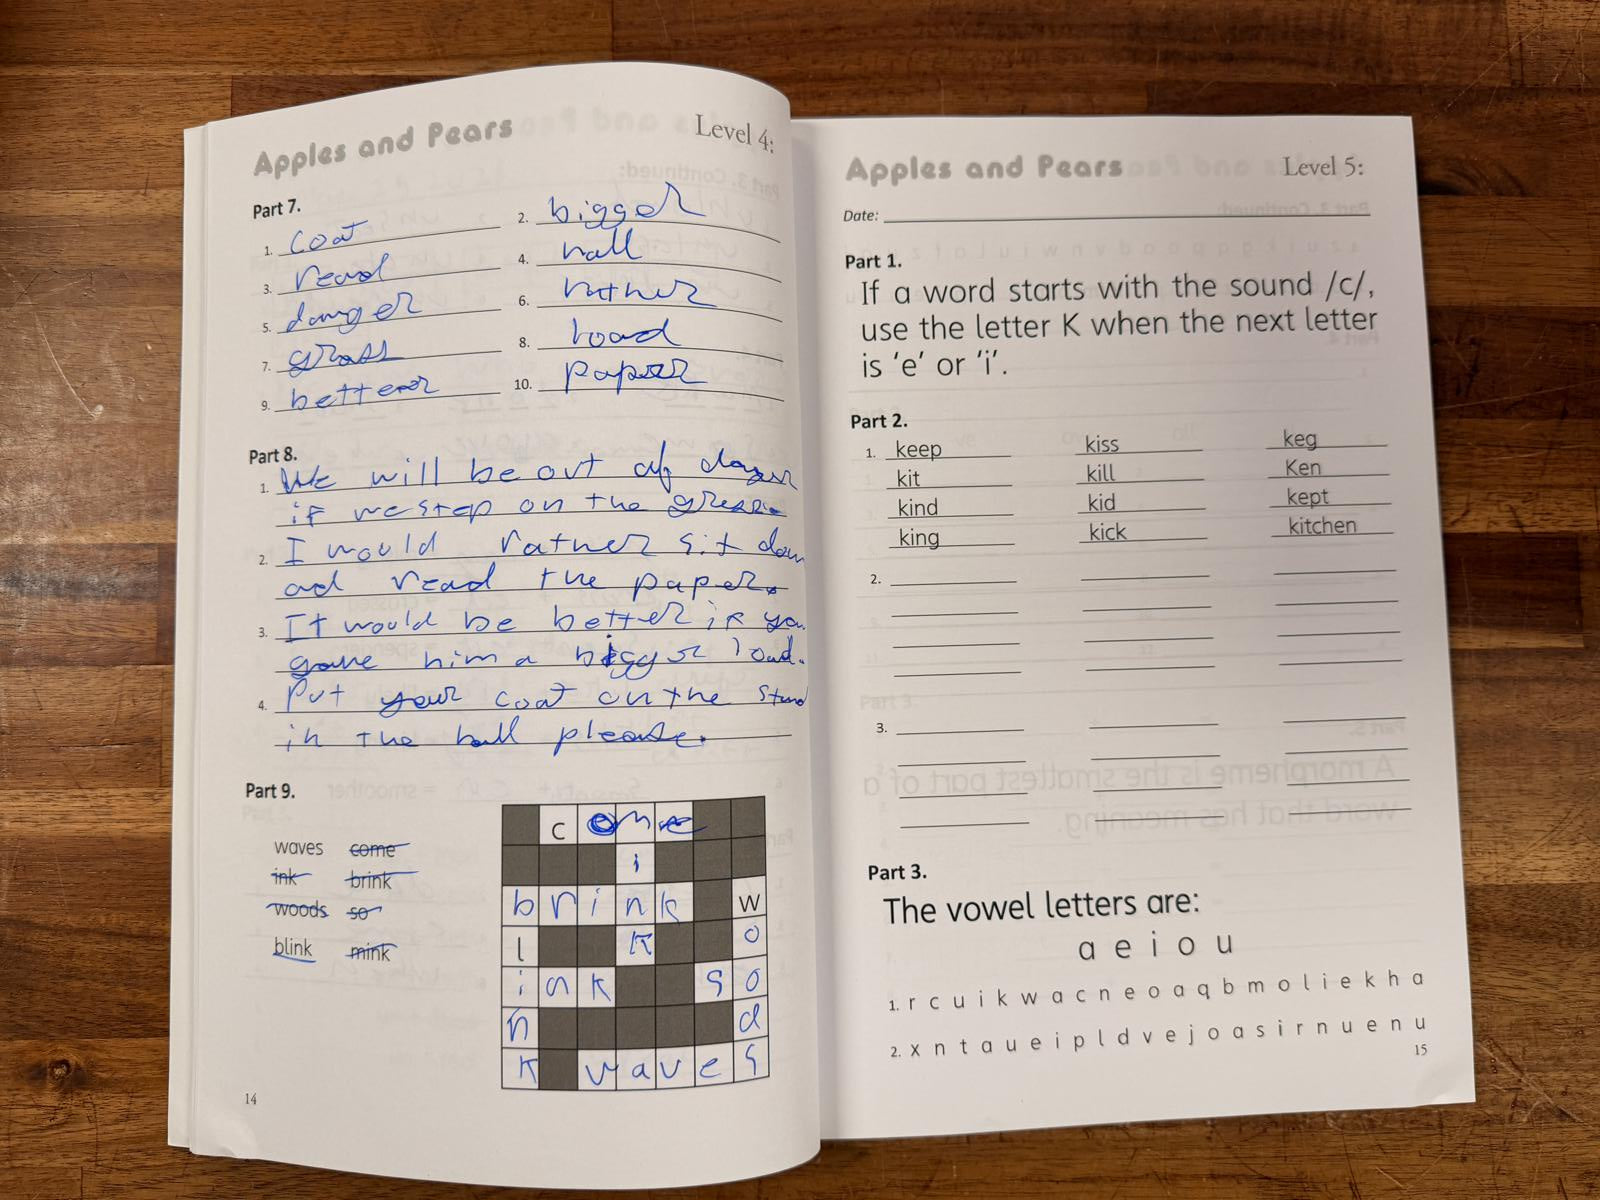 Apples and Pears Level 4:
Part 7.
1. coat 2. bigger
3. read 4. hall
5. danger 6. rather
7. grass 8. load
9. better 10. paper
Part 8.
1. We will be out of danger
if we step on the
2. I would rather sit down
ad read the paper.
3. It would be better if you
gave him a bigger load.
4. Put your coat on the stand
in the hall please.
Part 9.
waves come
ink brink
woods so
blink mink
c o m e
i
b r i n k w
l k o
i n k s o
n d
k w a v e s
14
Apples and Pears Level 5:
Date:
Part 1.
If a word starts with the sound /c/,
use the letter K when the next letter
is 'e' or 'i'.
Part 2.
1. keep kiss keg
kit kill Ken
kind kid kept
king kick kitchen
2.
3.
Part 3.
The vowel letters are:
a e i o u
1. r c u i k w a c n e o a q b m o l i e k h a
2. x n t a u e i p l d v e j o a s i r n u e n u
15